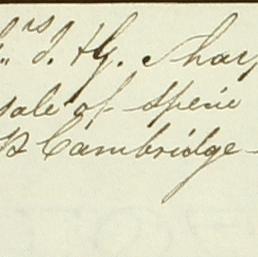 rs J. Hy. Sharp
sale of Specie
B Cambridge -